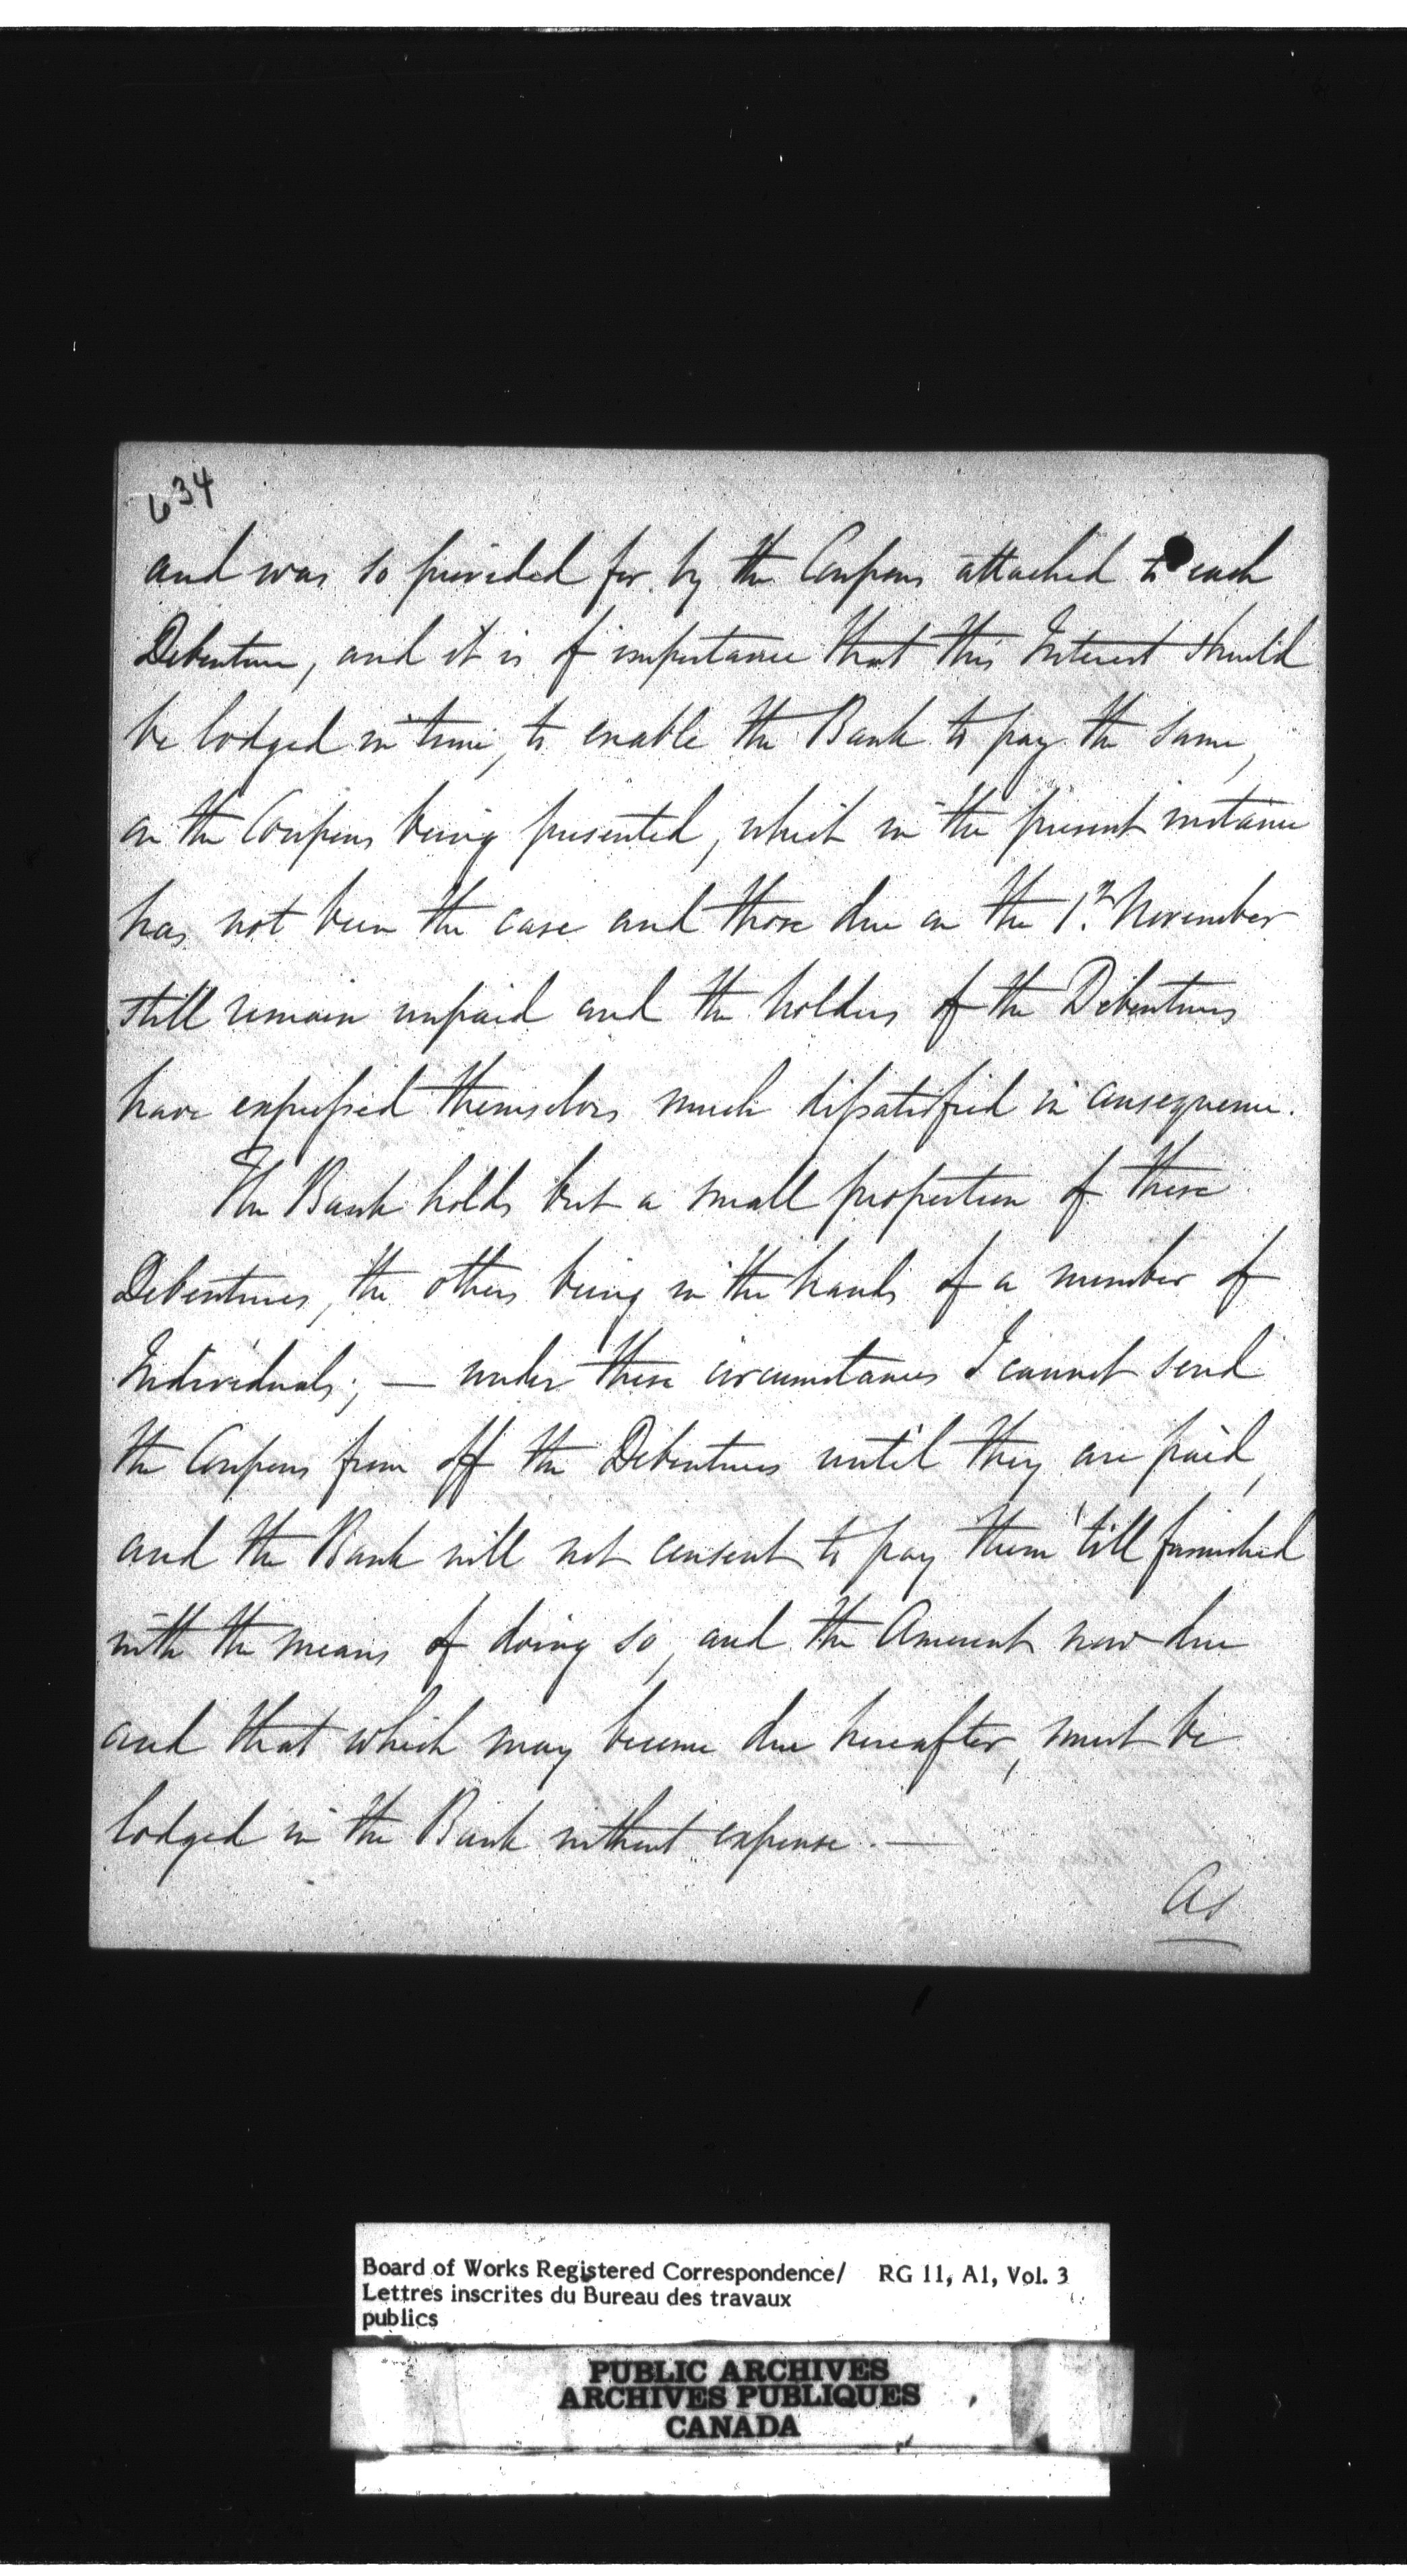 634
and was so provided for by the Coupons attached to each
Debenture, and it is of importance that this Interest should
be lodged in time, to enable the Bank to pay the same,
on the Coupons being presented, which in the present instance
has not been the case and those due on the 1st November
still remain unpaid and the holders of the Debentures
have expressed themselves much dissatisfied in consequence.
The Bank holds but a small proportion of these
Debentures, the others being in the hands of a number of
Individuals; — under these circumstances I cannot send
the Coupons from off the Debentures until they are paid,
and the Bank will not consent to pay them 'till furnished
with the means of doing so, and the Amount now due
and that which may become due hereafter, must be
lodged in the Bank without expense. —
As
Board of Works Registered Correspondence/ RG 11, A1, Vol. 3
Lettres inscrites du Bureau des travaux
publics
PUBLIC ARCHIVES
ARCHIVES PUBLIQUES
CANADA